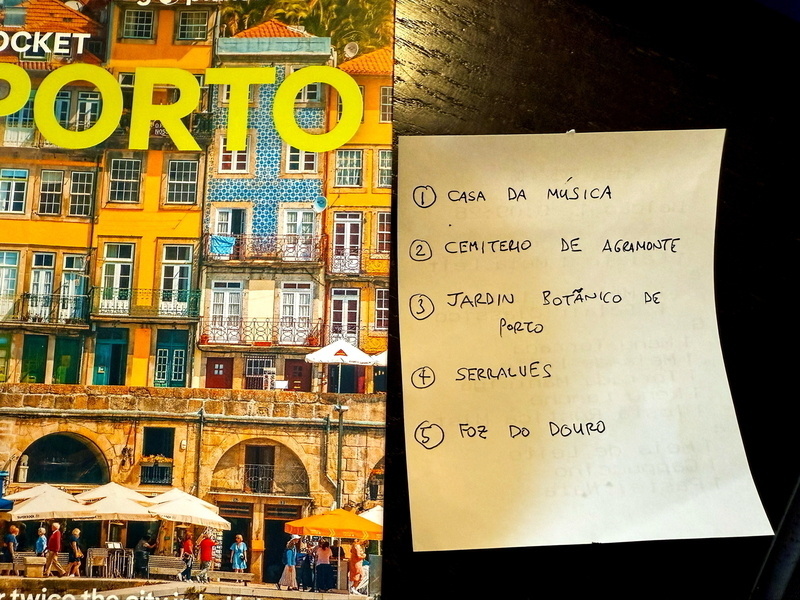 POCKET
PORTO
① CASA DA MÚSICA
② CEMITERIO DE AGRAMONTE
③ JARDIN BOTÂNICO DE
PORTO
④ SERRALVES
⑤ FOZ DO DOURO
twice the city